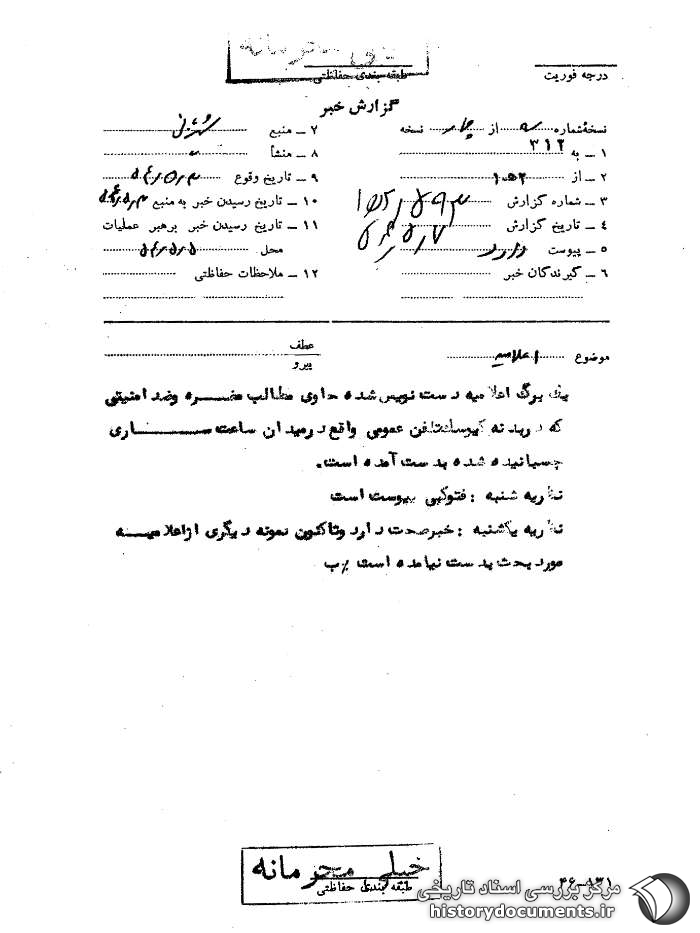 خیلی محرمانه
طبقه بندی حفاظتی
درجه فوریت
گزارش خبر
نسخهٔ شماره از چهار نسخه
۱ ــ به ۳۱۲
۲ ــ از
۳ ــ شماره گزارش
۴ ــ تاریخ گزارش
۵ ــ پیوست دارد
۶ ــ گیرندگان خبر
۷ ــ منبع
۸ ــ منشأ
۹ ــ تاریخ وقوع
۱۰ ــ تاریخ رسیدن خبر به منبع
۱۱ ــ تاریخ رسیدن خبر برهبر عملیات
محل
۱۲ ــ ملاحظات حفاظتی
موضوع اعلامیه
عطف
پیرو
یک برگ اعلامیه دست نویس شده حاوی مطالب مضره وضد امنیتی
که دربدنه کیوسک تلفن عمومی واقع درمیدان ساعت ساری
چسبانیده شده بدست آمده است.
نظریه شنبه : فتوکپی پیوست است
نظریه یکشنبه : خبرصحت دارد وتاکنون نمونه دیگری ازاعلامیه
مورد بحث بدست نیامده است ٪ب
خیلی محرمانه
طبقه بندی حفاظتی
۴۶-۸۳۱
مرکز بررسی اسناد تاریخی
historydocuments.ir